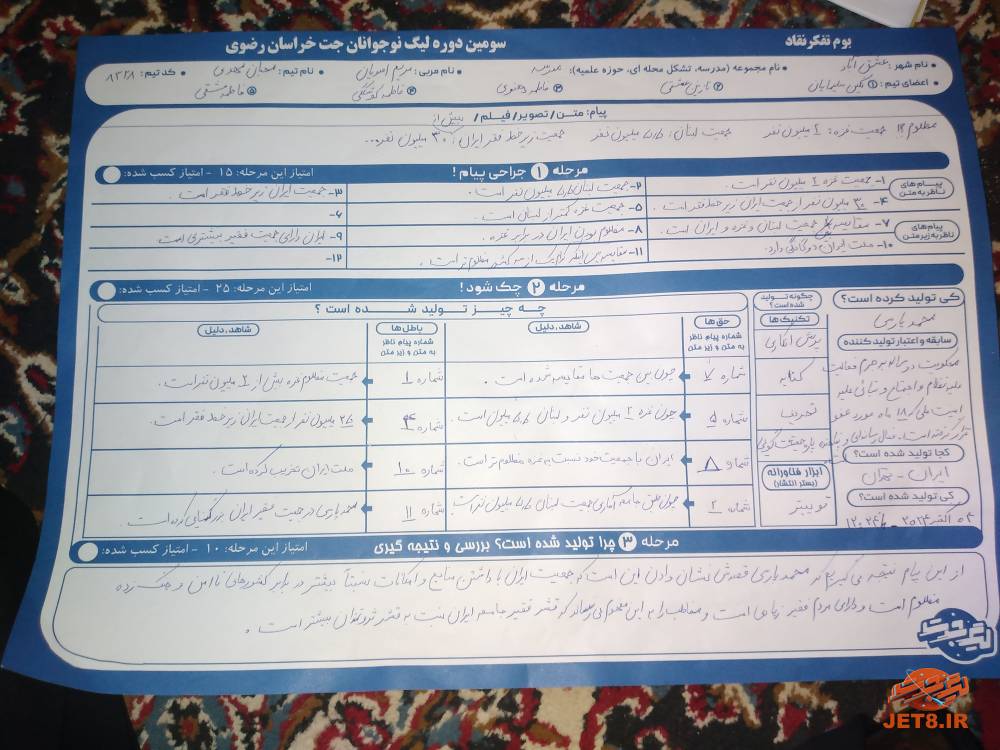 بوم تفکر نقاد
سومین دوره لیگ نوجوانان جت خراسان رضوی
• نام شهر: عشق آباد • نام مجموعه (مدرسه، تشکل محله ای، حوزه علمیه): مدرسه • نام مربی: مریم • نام تیم: • کد تیم: ۸۳۲۸
• اعضای تیم: ① نگین سلیمانیان ② نازنین ③ فاطمه ④ فاطمه ⑤ فاطمه
پیام: متن / تصویر / فیلم /
مظلوم !! جمعیت غزه: ۲ میلیون نفر جمعیت لبنان: ۵/۵ میلیون نفر جمعیت زیر خط فقر ایران: بیش از ۳۰ میلیون نفر...
مرحله ① جراحی پیام!
امتیاز این مرحله: ۱۵ - امتیاز کسب شده:
پیام های ناظر به متن
۱- جمعیت غزه ۲ میلیون نفر است. ۲- جمعیت لبنان ۵/۵ میلیون نفر است. ۳- جمعیت ایران زیر خط فقر است.
۴- ۳۰ میلیون نفر از جمعیت ایران زیر خط فقر است. ۵- جمعیت غزه کمتر از لبنان است. ۶-
پیام های ناظر به زیر متن
۷- مقایسه جمعیت لبنان و غزه و ایران است. ۸- مظلوم بودن ایران در برابر غزه. ۹- ایران دارای جمعیت فقیر بیشتری است.
۱۰- ملت ایران دوگانگی دارد. ۱۱- مقایسه بین اینکه کدام یک از سه کشور مظلوم تر است. ۱۲-
مرحله ② چک شود!
امتیاز این مرحله: ۲۵ - امتیاز کسب شده:
کی تولید کرده است؟
محمد پارسی
سابقه و اعتبار تولیدکننده
محکومیت در به جرم فعالیت
علیه نظام و اجتماع و تبانی علیه
امنیت ملی که ۱۸ ماه مورد عفو
قرار گرفته است. فعال رسانه ای و
کجا تولید شده است؟
ایران - تهران
کی تولید شده است؟
۰۴ اکتبر ۲۰۲۴
چگونه تولید شده است؟
تکنیک ها
کنایه
تحریف
پاره حقیقت گویی
ابزار فناورانه (بستر انتشار)
توییتر
چه چیز تولید شده است؟
حق ها
شماره پیام ناظر به متن و زیر متن
شاهد، دلیل
باطل ها
شماره پیام ناظر به متن و زیر متن
شاهد، دلیل
شماره ۷ چون بین جمعیت ها مقایسه شده است. شماره ۱ جمعیت مظلوم غزه بیش از ۲ میلیون نفر است.
شماره ۵ چون غزه ۲ میلیون نفر و لبنان ۵/۵ میلیون است. شماره ۴ ۲۵ میلیون نفر از جمعیت ایران زیر خط فقر است.
شماره ۸ ایران با جمعیت خود نسبت به غزه مظلوم تر است. شماره ۱۰ ملت ایران تخریب کرده است.
شماره ۲ چون طبق جامعه آماری جمعیت لبنان ۵/۵ میلیون نفر است شماره ۱۱ محمد پارسی در جمعیت فقیر ایران بزرگنمایی کرده است.
مرحله ③ چرا تولید شده است؟ بررسی و نتیجه گیری
امتیاز این مرحله: ۱۰ - امتیاز کسب شده:
از این پیام نتیجه می گیریم که محمد پارسی قصدش نشان دادن این است که جمعیت ایران با داشتن منابع و امکانات نسبتاً بیشتر در برابر کشورهای ناامن و جنگ زده
مظلوم است و دارای مردم فقیر زیادی است و مخاطب را به این مفهوم می رساند که قشر فقیر جامعه ایران نسبت به قشر ثروتمندان بیشتر است.
لیگ جت
JET8.IR